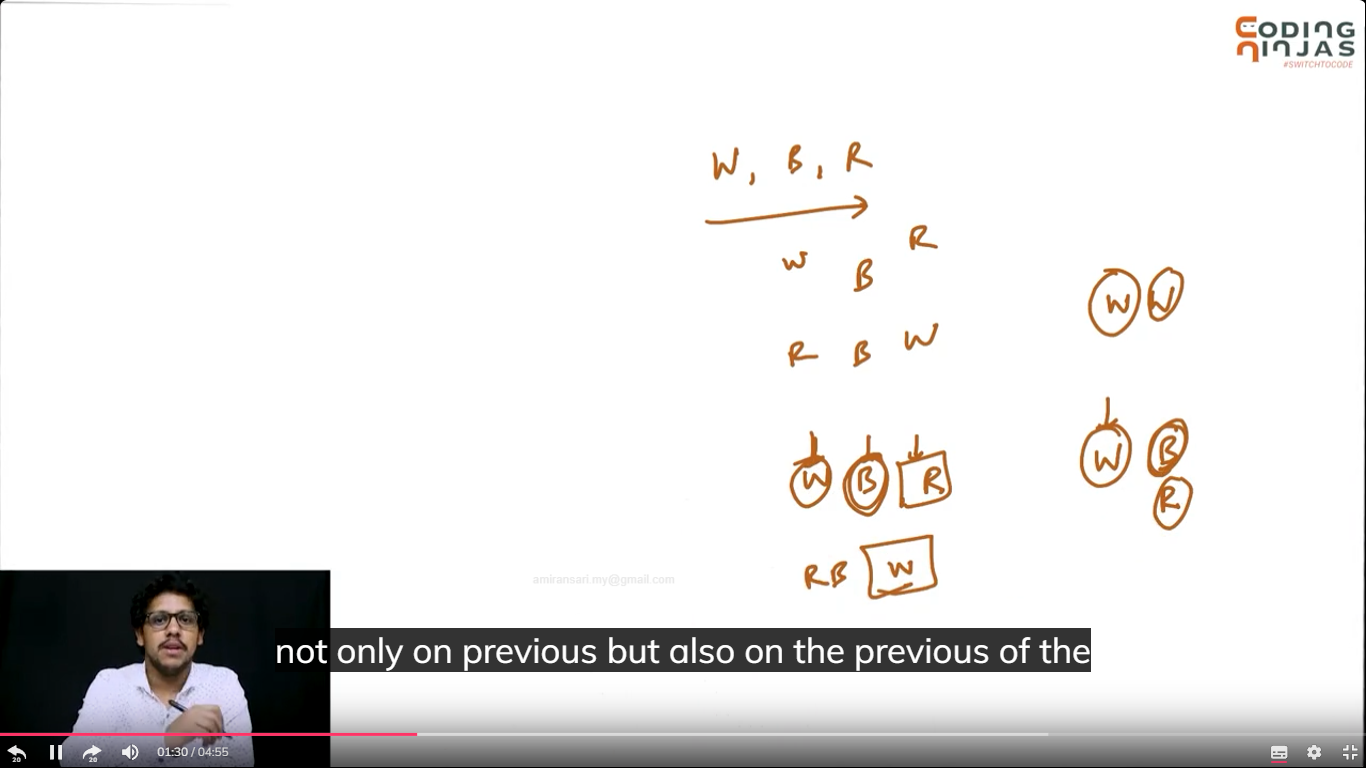 CODING
NINJAS
#SWITCHTOCODE
W, B, R
W B R
W W
R B W
W B
W B R
R
R B W
amiransari.my@gmail.com
not only on previous but also on the previous of the
20
20
01:30 / 04:55